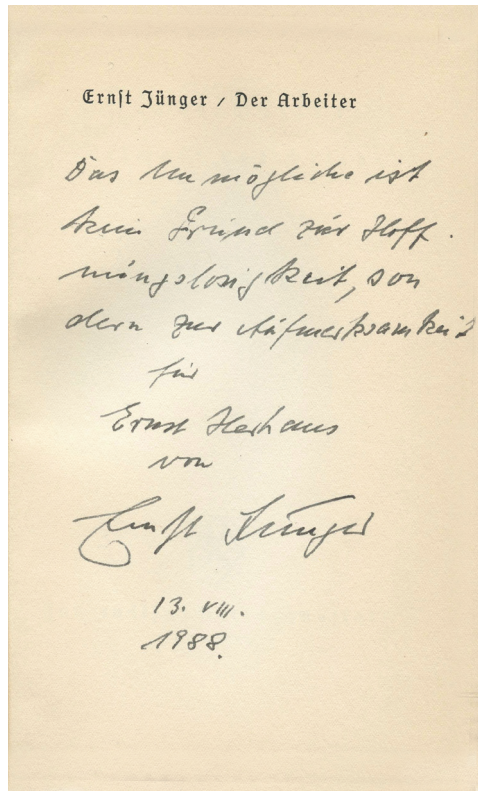 Ernst Jünger / Der Arbeiter
Das Unmögliche ist
kein Grund zur Hoff-
nungslosigkeit, son
dern zur Aufmerksamkeit
für
Ernst Herhaus
von
Ernst Jünger
13. VIII.
1988.